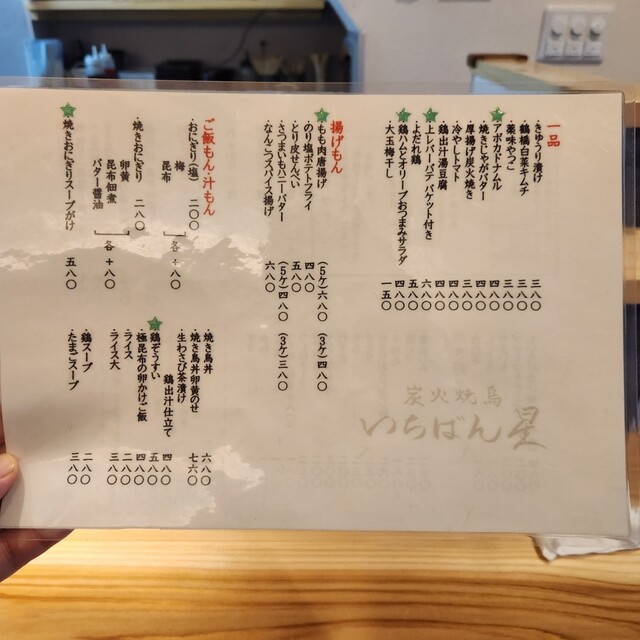 一品
・きゅうり漬け 三八〇
・鶴橋白菜キムチ 三八〇
・薬味やっこ 三八〇
・アボカドナムル 四八〇
・焼きじゃがバター 四八〇
・厚揚げ炭火焼き 三八〇
・冷やしトマト 四八〇
・鶏出汁湯豆腐 四八〇
・上レバーパテ バケット付き 六八〇
・よだれ鶏 五八〇
・鶏ハムとオリーブおつまみサラダ 四八〇
・大玉梅干し 一五〇
揚げもん
・もも肉唐揚げ (5ケ)六八〇 (3ケ)四八〇
・のり塩ポテトフライ 四八〇
・とり皮せんべい 五八〇
・さつまいもハニーバター (5ケ)四八〇 (3ケ)三八〇
・なんこつスパイス揚げ 六八〇
ご飯もん・汁もん
・おにぎり(塩) 二〇〇
梅
昆布
各+八〇
・焼きおにぎり 二八〇
卵黄
昆布佃煮
バター醤油
各+八〇
・焼きおにぎりスープがけ 五八〇
・焼き鳥丼 六八〇
・焼き鳥丼卵黄のせ 七六〇
・生わさび茶漬け
鶏出汁仕立て 四八〇
・鶏ぞうすい 五八〇
・極昆布の卵かけご飯 四八〇
・ライス 二八〇
・ライス大 三八〇
・鶏スープ 二八〇
・たまごスープ 三八〇
炭火焼鳥
いちばん星